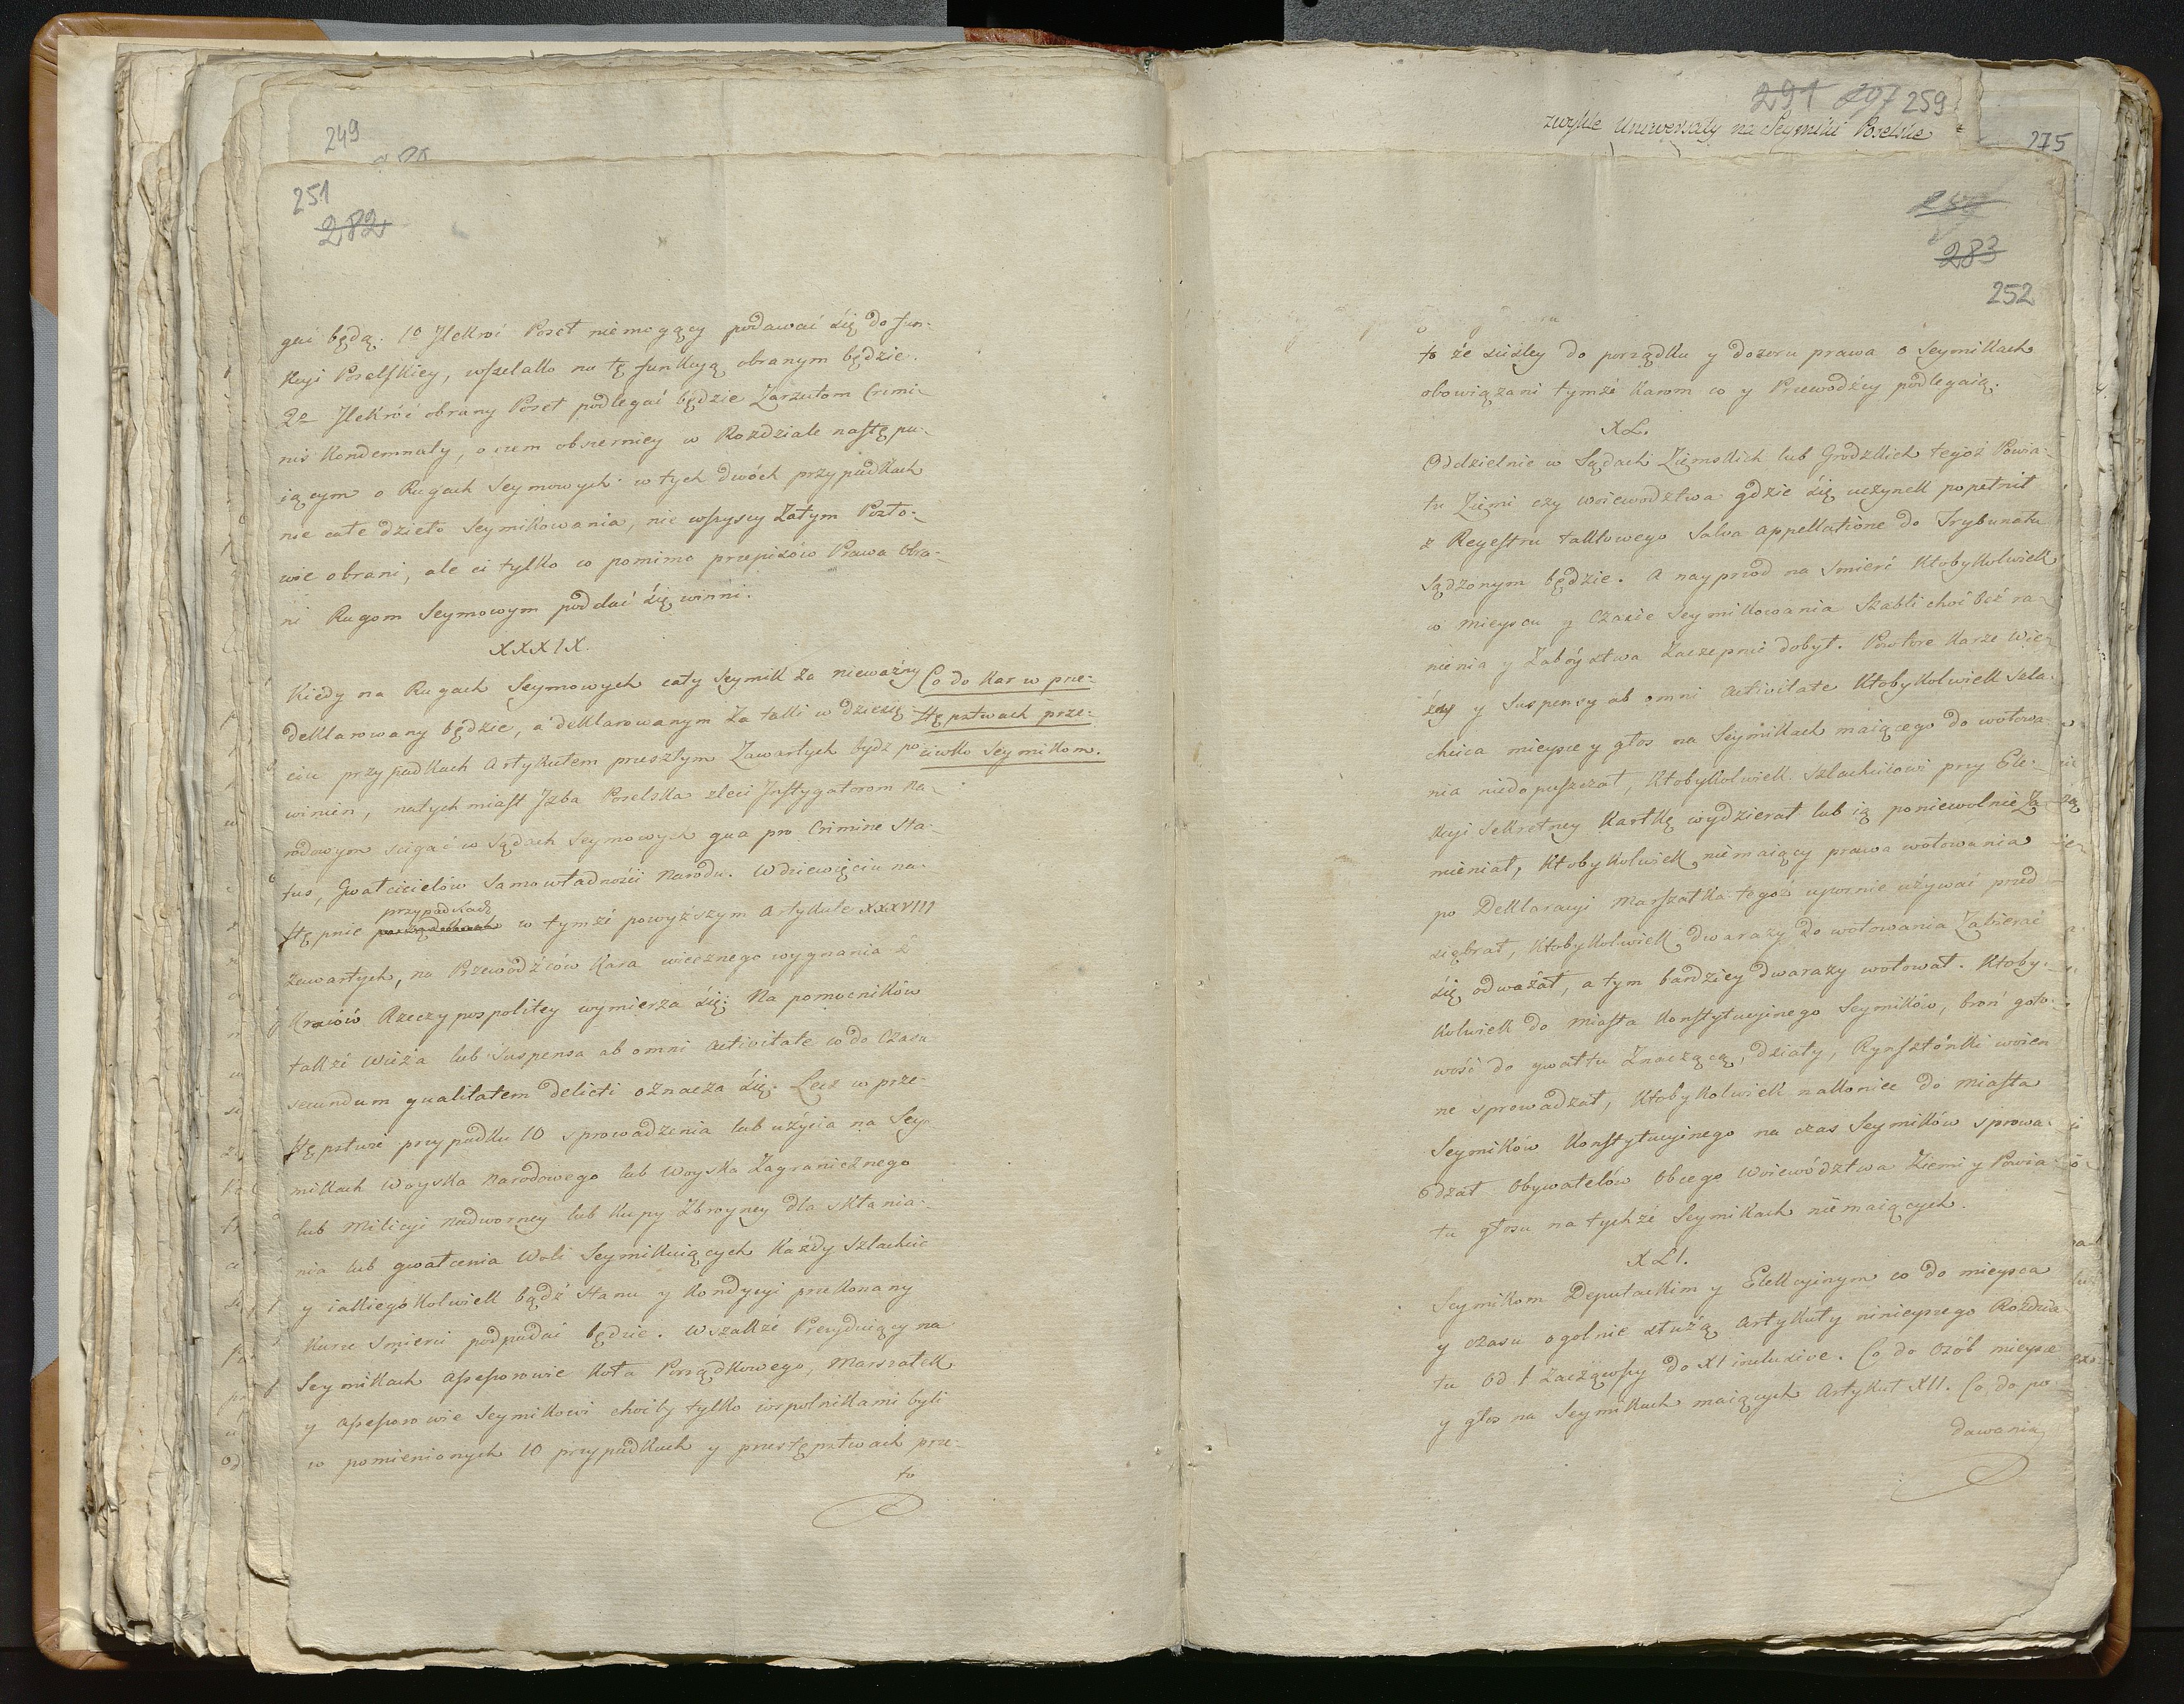 249
251
282
gać będą. 1o Jlekroć Poseł niemogący podawać się do fun-
kcyi Poselskiey, wszelako na tę funkcyą obranym będzie.
2o Jlekróć obrany Poseł podlegać będzie Zarzutom Crimi-
nis Kondemnaty, o czem obszerniey w Rozdziale nastę pu-
iącym o Rugach Seymowych: w tych dwóch przypadkach
nie całe dzieło Seymikowania, nie wszyscy Zatym Posło-
wie obrani, ale ci tylko co pomimo przepisów Prawa Obra-
ni Rugom Seymowym poddać się winni.
XXXIX.
Kiedy na Rugach Seymowych cały Seymik za nieważny
deklarowany będzie, a deklarowanym Za taki w dziesię
ciu przypadkach Artykułem przeszłym Zawartych bydź po
winien, natychmiast Jzba Poselska zleci Jnstygatorom Na-
rodowym scigać w Sądach Seymowych qua pro Crimine Sta-
tus, Gwałcicielów Samowładności Narodu. W dziewięciu na-
przypadkach
stępnie w tymże powyższym Artykule XXXVIII
zawartych, na Przewodźców Kara wiecznego wygnania z
Kraiów Rzeczypospolitey wymierza się; Na pomocników
także Wieża lub Suspensa ab omni Activitate co do Czasu
secundum qualitatem delicti oznacza się. Lecz w prze-
stępstwie przypadku 10 sprowadzenia lub użycia na Sey-
mikach Woyska Narodowego lub Woyska Zagranicznego
lub Milicyi Nadworney lub Kupy Zbroyney dla skłania-
nia lub gwałcenia Woli Seymikuiących Każdy Szlachcic
y iakiegokolwiek bądź Stanu y Kondycyi przekonany
Karze Śmierci podpadać będzie. Wszakże Prezyduiący na
Seymikach Assessorowie Koła Porządkowego, Marszałek
y Assessorowie Seymikowi choćby tylko wspolnikami byli
w pomienionych 10 przypadkach y przestępstwach prze-
to
Co do Kar w prze-
stępstwach prze-
ciwko Seymikom.
291 297 259
zwykłe Uniwersały na Seymiki Poselskie
275
283
252
to że ściśley do porządku y dozoru prawa o Seymikach
obowiązani tymże Karom co y Przewodźcy podlegaią.
XL.
Oddzielnie w Sądach Ziemskich lub Grodzkich tegoż Powia-
tu Ziemi czy Woiewodztwa gdzie się uczynek popełnił
z Regestru taktowego Salva Appellatione do Trybunału
Sądzonym będzie. A nayprzod na śmierć Ktobykolwiek
w mieyscu y Czasie Seymikowania Szabli choć bez ra-
nienia y Zabóystwa Zaczepnie dobył. Powtore Karze Wie-
ży y Suspensy ab omni Activitate Ktobykolwiek Szla-
chcica mieysce y głos na Seymikach maiącego do wotowa-
nia niedopuszczał, Ktobykolwiek Szlachcicowi przy Ele-
kcyi Sekretney Kartkę wydzierał lub ią poniewolnie Za-
mieniał, Ktobykolwiek niemaiący prawa wotowania
po Deklaracyi Marszałka tegoż upornie używać przed
się brał, Ktobykolwiek dwa razy do wotowania Zabierać
się odważał, a tym bardziey dwa razy wotował. Ktoby-
kolwiek do Miasta Konstytucyinego Seymików, broń goto-
wość do gwałtu Znaczącą, działy, Rynsztónki woien
ne sprowadzał, Ktobykolwiek nakoniec do Miasta
Seymików Konstytucyinego na czas Seymików sprowa-
dzał Obywatelów Obcego Woiewództwa Ziemi y Powia-
tu głosu na tychże Seymikach niemaiących.
XLI.
Seymikom Deputackim y Elekcyinym co do mieysca
y czasu ogolnie służą Artykuły ninieyszego Rozdzia-
łu Od I Zacząwszy do XI inclusive. Co do Osób mieysce
y głos na Seymikach maiących Artykuł XII. Co do po-
dawania